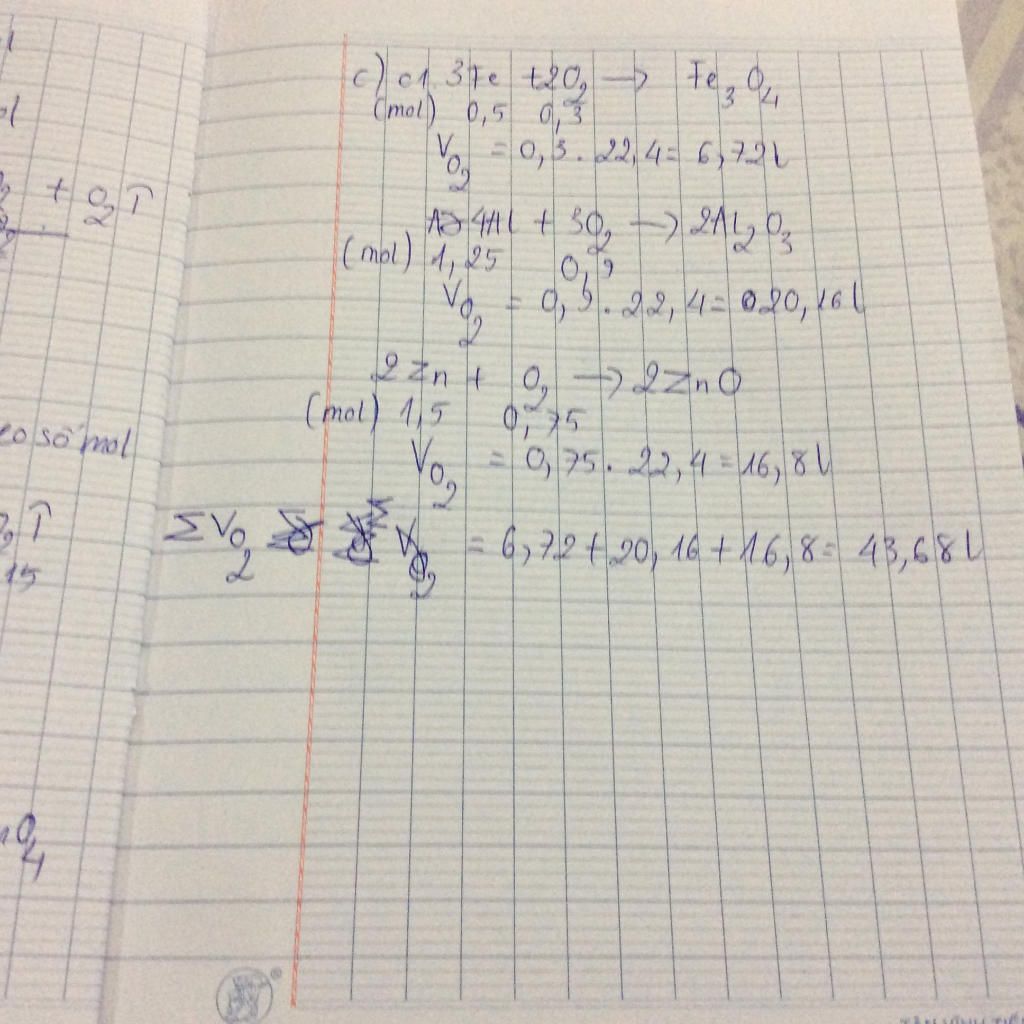 + O2 ↑
eo số mol
O2 ↑
15
nO4
c) c1. 3Fe + 2O2 → Fe3O4
(mol) 0,5 0,3
VO2 = 0,3 . 22,4 = 6,72l
4Al + 3O2 → 2Al2O3
(mol) 1,25 0,9
VO2 = 0,9 . 22,4 = 20,16l
2Zn + O2 → 2ZnO
(mol) 1,5 0,75
VO2 = 0,75 . 22,4 = 16,8l
ΣVO2 = 6,72 + 20,16 + 16,8 = 43,68l